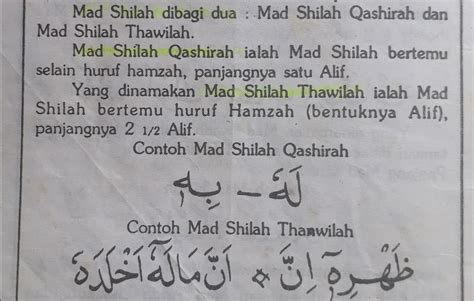 Mad Shilah dibagi dua : Mad Shilah Qashirah dan
Mad Shilah Thawilah.
Mad Shilah Qashirah ialah Mad Shilah bertemu
selain huruf hamzah, panjangnya satu Alif.
Yang dinamakan Mad Shilah Thawilah ialah Mad
Shilah bertemu huruf Hamzah (bentuknya Alif),
panjangnya 2 1/2 Alif.
Contoh Mad Shilah Qashirah
لَهٗ - بِهٖ
Contoh Mad Shilah Thawilah
ظَهْرِهٖٓ اِنَّ * اَنَّ مَالَهٗٓ اَخْلَدَهٗ